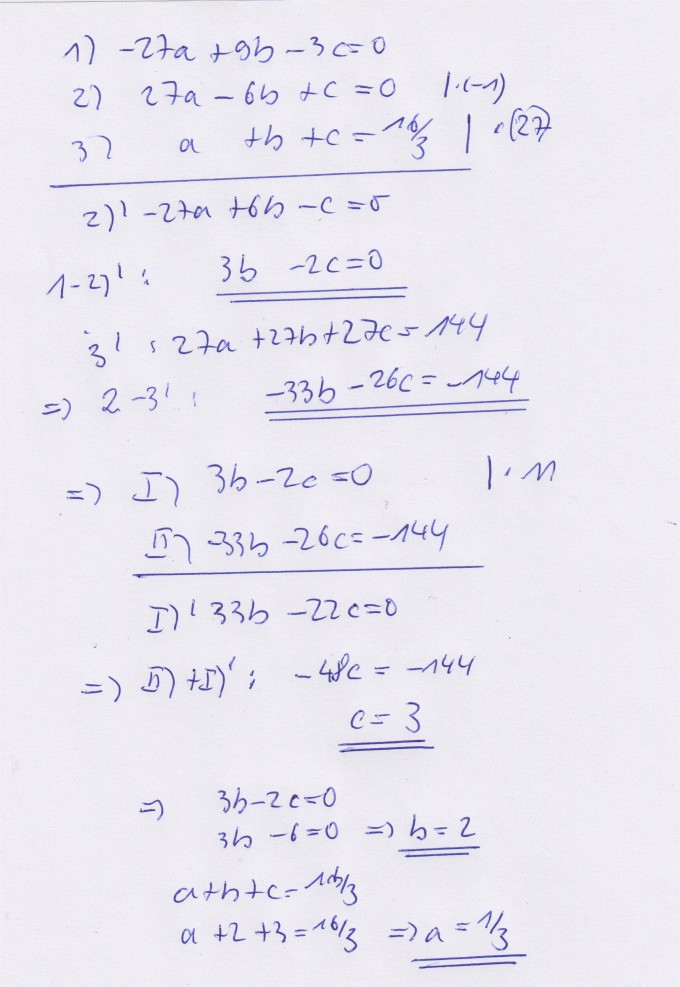 1) -27a + 9b - 3c = 0
2) 27a - 6b + c = 0 | · (-1)
3) a + b + c = 16/3 | · (27)
2)' -27a + 6b - c = 0
1-2)' : 3b - 2c = 0
3' : 27a + 27b + 27c = 144
=> 2 - 3' : -33b - 26c = -144
=> I) 3b - 2c = 0 | · 11
II) -33b - 26c = -144
I)' 33b - 22c = 0
=> II) + I)' : -48c = -144
c = 3
=> 3b - 2c = 0
3b - 6 = 0 => b = 2
a + b + c = 16/3
a + 2 + 3 = 16/3 => a = 1/3